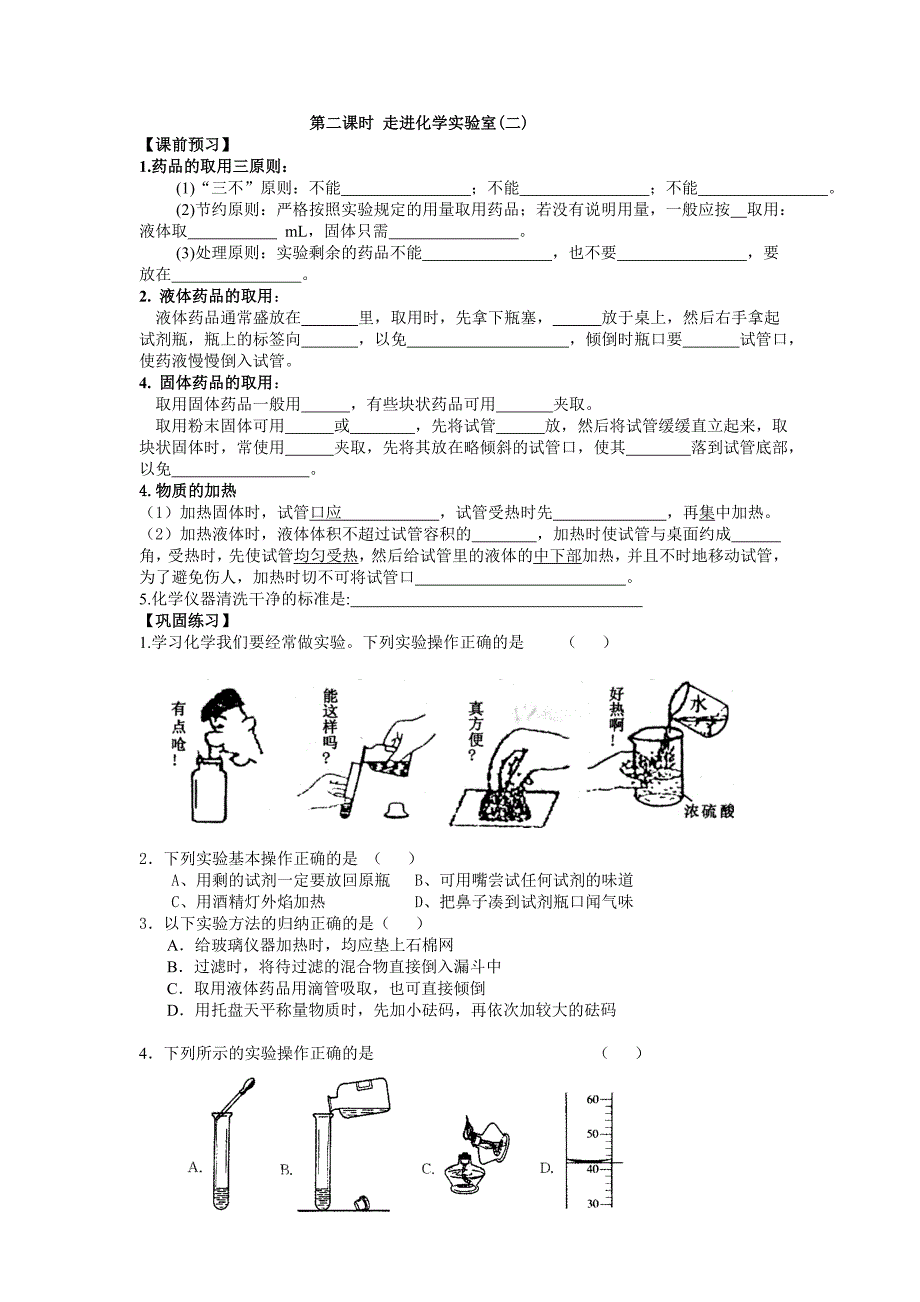 第二课时 走进化学实验室(二)
【课前预习】
1.药品的取用三原则：
(1)“三不”原则：不能________________；不能________________；不能________________。
(2)节约原则：严格按照实验规定的用量取用药品；若没有说明用量，一般应按__取用：
液体取___________ mL，固体只需________________。
(3)处理原则：实验剩余的药品不能________________，也不要________________，要
放在________________。
2. 液体药品的取用：
液体药品通常盛放在_______里，取用时，先拿下瓶塞，______放于桌上，然后右手拿起
试剂瓶，瓶上的标签向_______，以免____________________，倾倒时瓶口要_______试管口，
使药液慢慢倒入试管。
4. 固体药品的取用：
取用固体药品一般用______，有些块状药品可用_______夹取。
取用粉末固体可用______或________，先将试管______放，然后将试管缓缓直立起来，取
块状固体时，常使用______夹取，先将其放在略倾斜的试管口，使其________落到试管底部，
以免_________________。
4.物质的加热
（1）加热固体时，试管口应____________，试管受热时先______________，再集中加热。
（2）加热液体时，液体体积不超过试管容积的________，加热时使试管与桌面约成______
角，受热时，先使试管均匀受热，然后给试管里的液体的中下部加热，并且不时地移动试管，
为了避免伤人，加热时切不可将试管口__________________________。
5.化学仪器清洗干净的标准是:____________________________________
【巩固练习】
1.学习化学我们要经常做实验。下列实验操作正确的是 （ ）
有点呛！
能这样吗？
真方便？
好热啊！
水
浓硫酸
2．下列实验基本操作正确的是 （ ）
A、用剩的试剂一定要放回原瓶 B、可用嘴尝试任何试剂的味道
C、用酒精灯外焰加热 D、把鼻子凑到试剂瓶口闻气味
3．以下实验方法的归纳正确的是（ ）
A．给玻璃仪器加热时，均应垫上石棉网
B．过滤时，将待过滤的混合物直接倒入漏斗中
C．取用液体药品用滴管吸取，也可直接倾倒
D．用托盘天平称量物质时，先加小砝码，再依次加较大的砝码
4．下列所示的实验操作正确的是 （ ）
A. B. C. D.
60
50
40
30